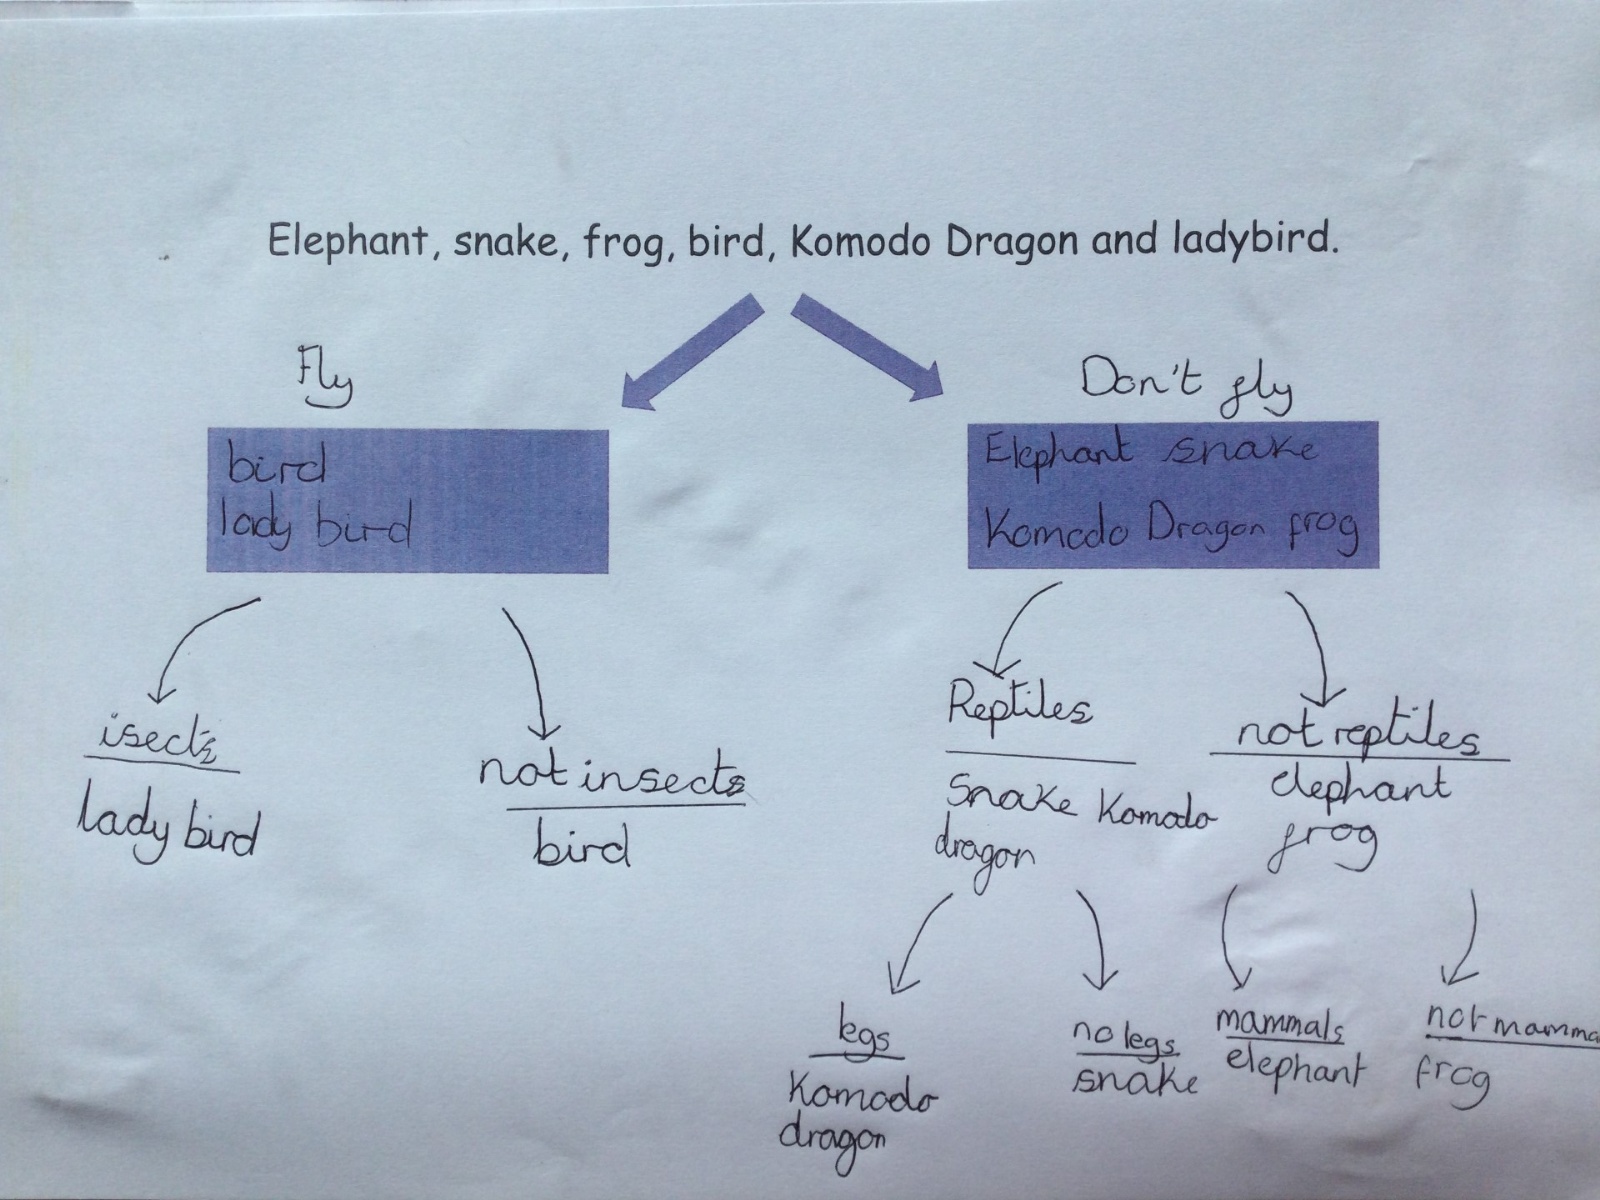 Elephant, snake, frog, bird, Komodo Dragon and ladybird.
Fly
bird
lady bird
isects
lady bird
not insects
bird
Don't fly
Elephant snake
Komodo Dragon frog
Reptiles
Snake Komodo
dragon
legs
Komodo
dragon
no legs
snake
not reptiles
elephant
frog
mammals
elephant
not mamma
frog